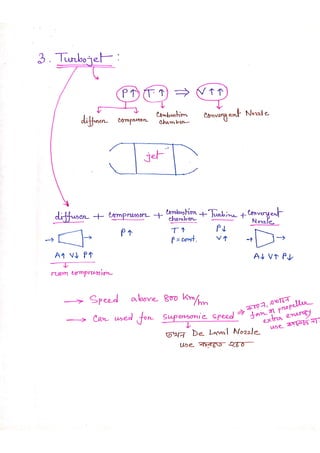 3. Turbojet :
P↑ T↑ ⇒ V↑↑
diffuser compressor Combustion chamber Convergent Nozzle
jet
diffuser + compressor + Combustion chamber + Turbine + Convergent Nozzle
P↑ T↑ P↓
P = const. V↑
A↑ V↓ P↑ A↓ V↑ P↓
ram compression
→ Speed above 800 Km/hr
→ Can used for supersonic speed →
fan or propeller
extra energy
use
তখন De Laval Nozzle
use করতে হবে